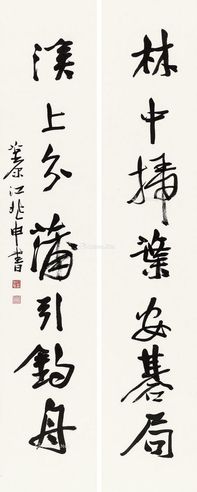 林中掃葉安碁局
溪上分蒲引釣舟
茮原江兆申書